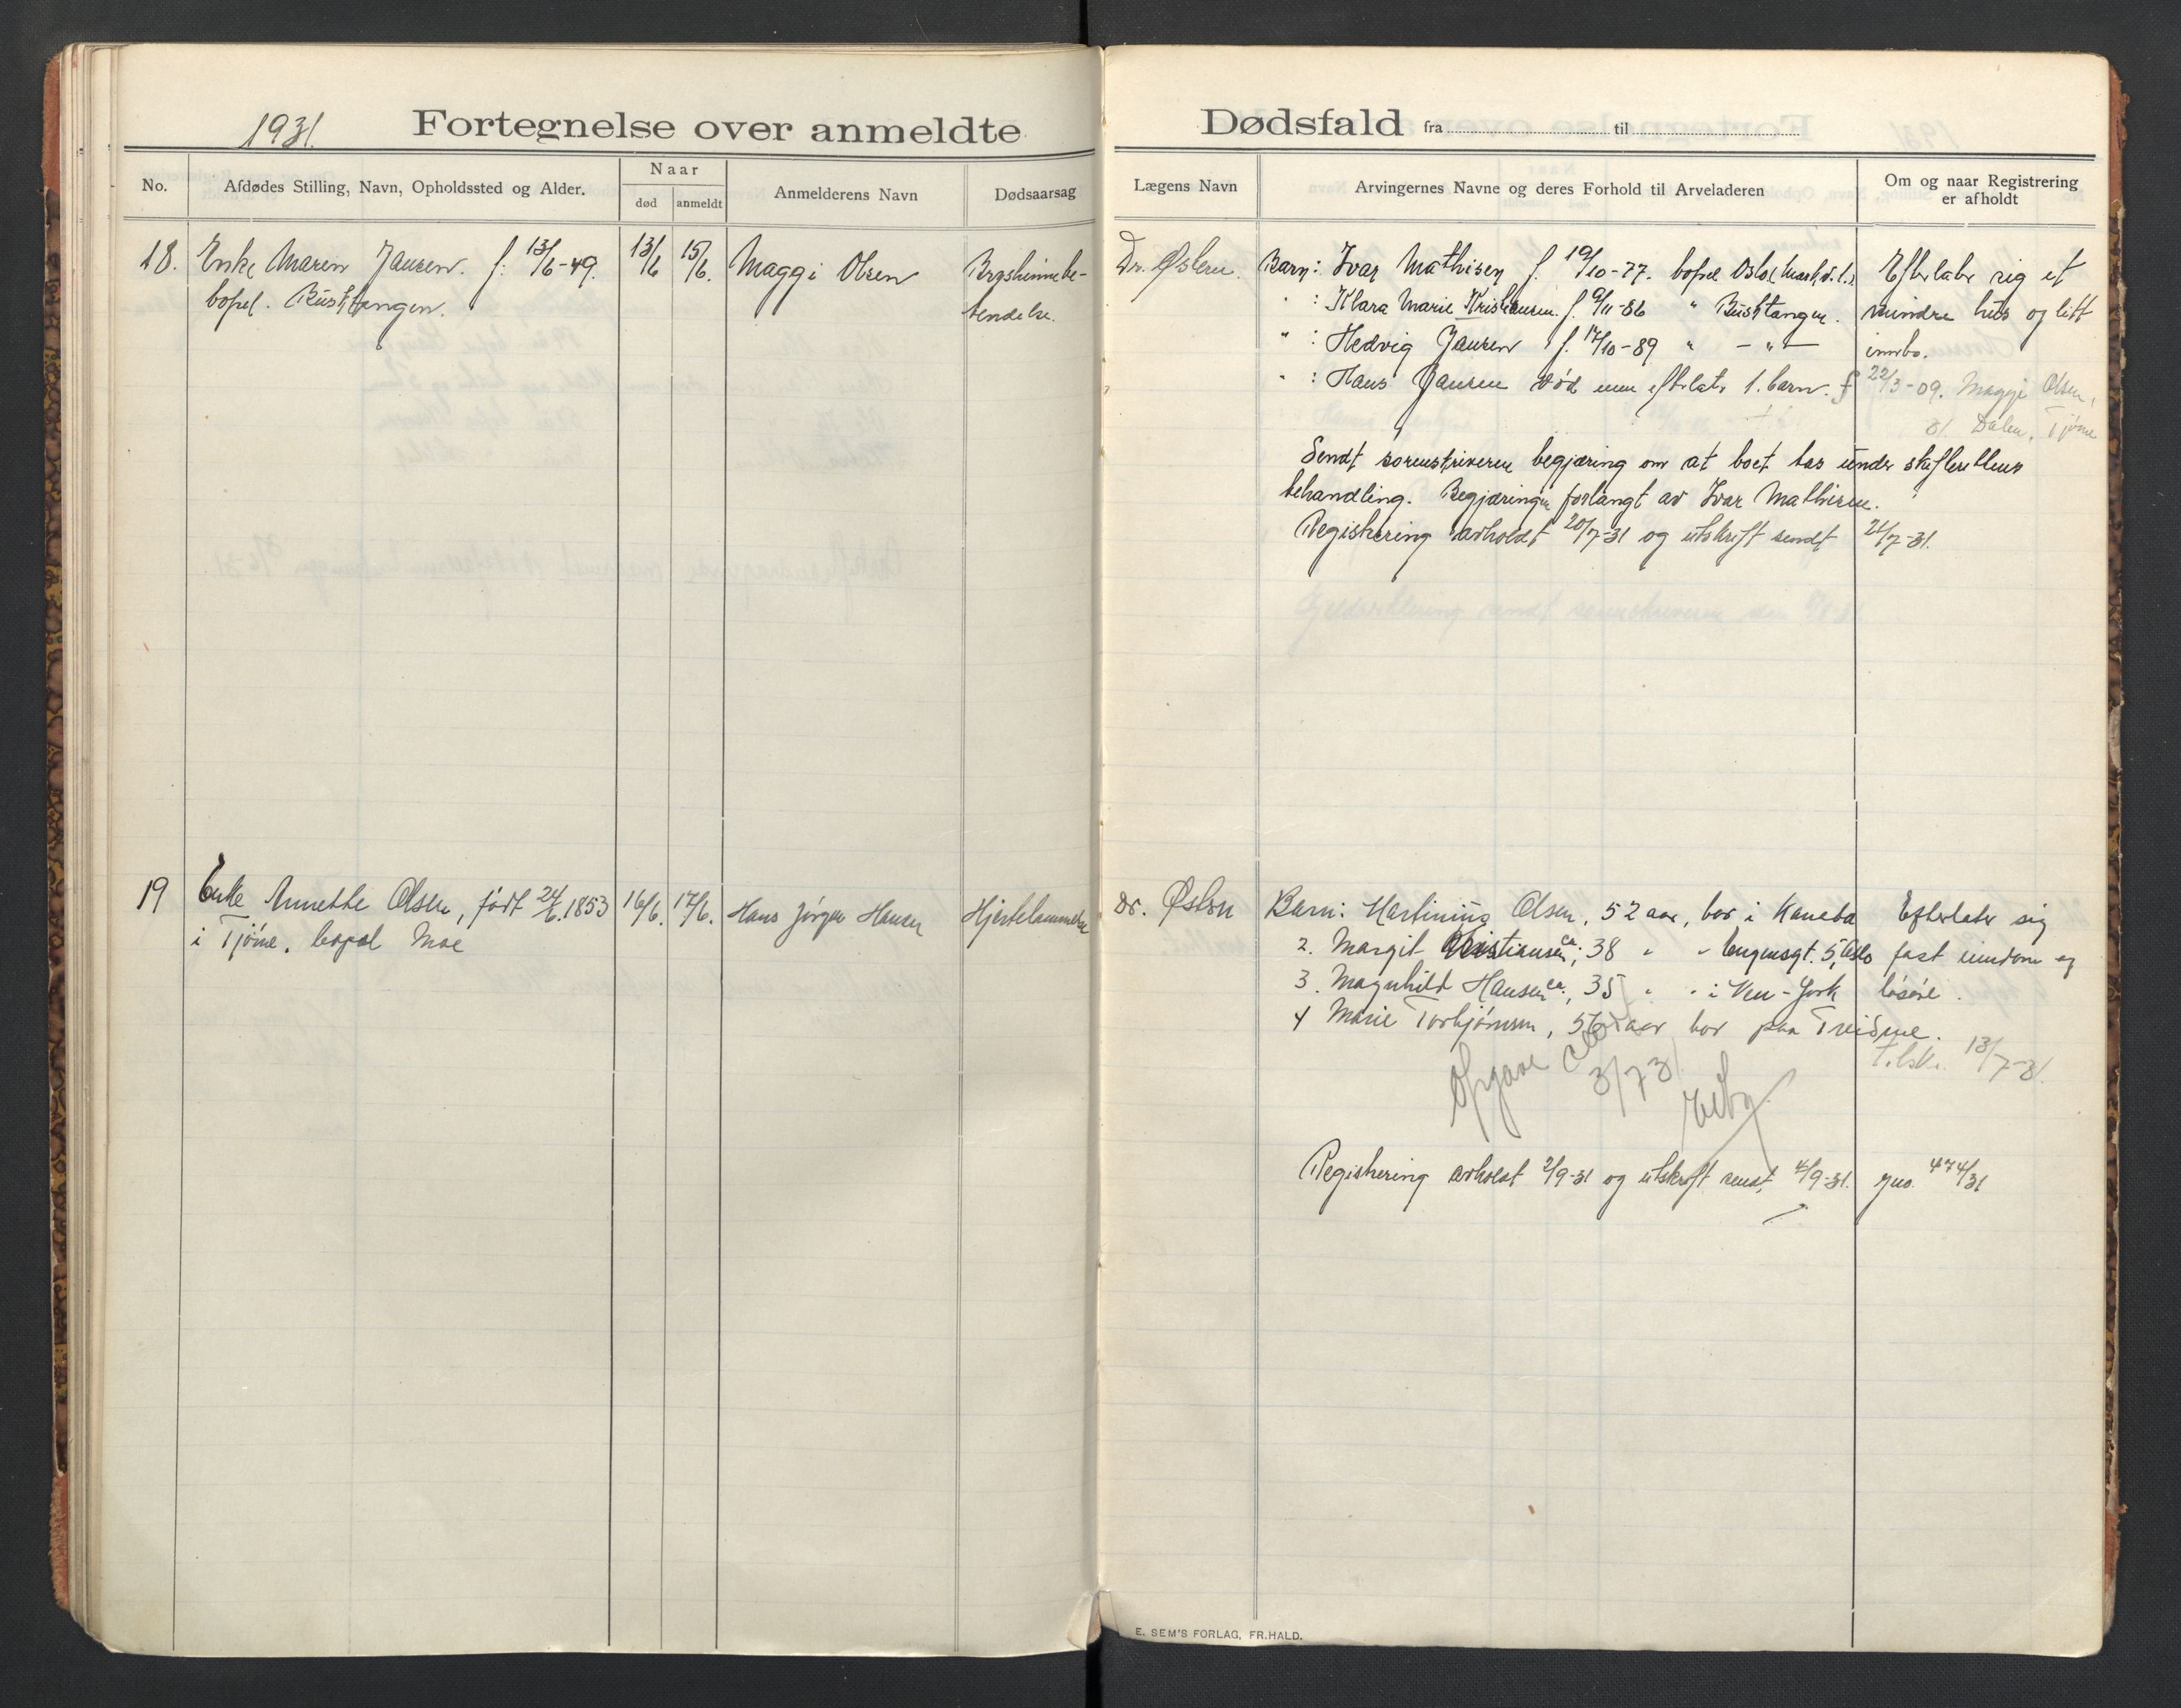 1931. Fortegnelse over anmeldte Dødsfald fra til
No.
Afdødes Stilling, Navn, Opholdssted og Alder.
Naar
død
anmeldt
Anmelderens Navn
Dødsaarsag
Lægens Navn
Arvingernes Navne og deres Forhold til Arveladeren
Om og naar Registrering
er afholdt
18.
Enke Maren Jansen. f: 13/6-49.
bopel. Busktangen.
13/6
15/6.
Maggi Olsen
Brysthinnebe-
tendelse.
Dr. Østern.
Barn: Ivar Mathisen f. 19/10-77. bopel Oslo
" : Klara Marie Kristiansen. f. 9/11-86 " Busktangen.
" : Hedvig Jansen f. 17/10-89 " - " -
" : Hans Jansen død men efterlater 1. barn. f 22/3-09. Maggi Olsen,
Dalen, Tjøme
Efterlater sig et
mindre hus og litt
innbo.
Sendt sorenskriveren begjæring om at boet tas under skifterettens
behandling. Begjæringen forlangt av Ivar Mathisen.
Registrering avholdt 20/7-31 og utskrift sendt 21/7-31.
19
Enke Annette Olsen, født 24/6.1853
i Tjøme. bopel Moe
16/6.
17/6.
Hans Jørgen Hansen
Hjertelammelse
Dr. Østern
Barn: Martining Olsen, 52 aar, bor i Kanada
2. Margit Kristiansen, ca. 38 " " Eugensgt. 5, Oslo
3. Magnhild Hansen, ca. 35 " " i New-York
4 Marie Torbjørnsen, 56 aar bor paa Treidene.
Efterlater sig
fast eiendom og
løsøre.
Tilsk. 13/7-31.
Opgave
3/7 31
Registrering avholdt 2/9-31 og utskrift sendt 4/9-31. jno. 474/31
E. SEM'S FORLAG, FR. HALD.